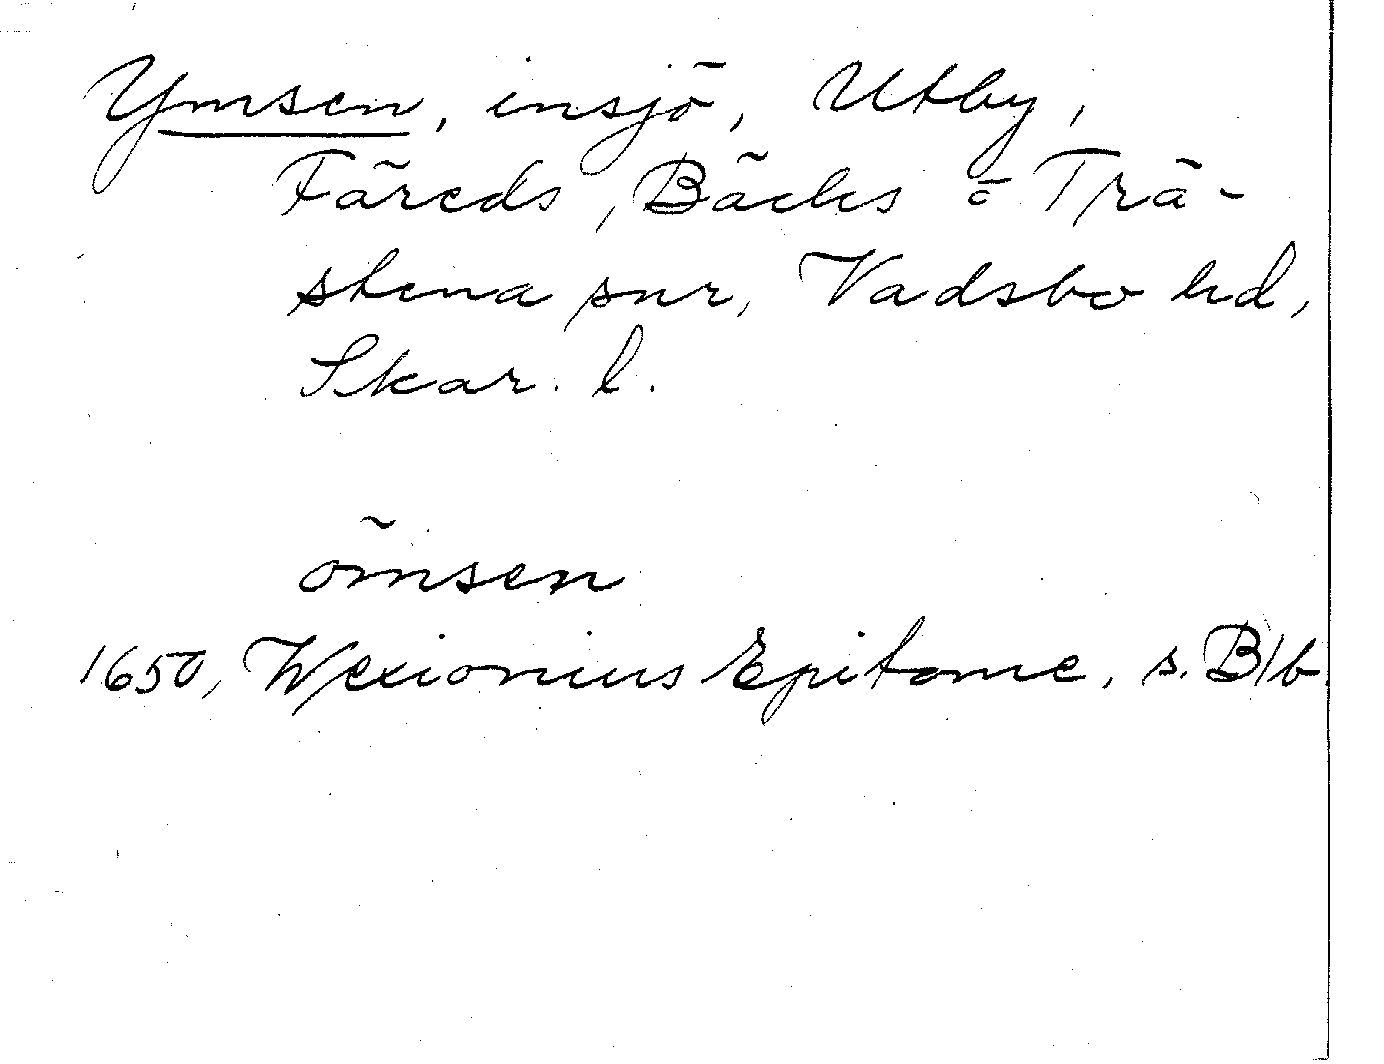 Ymsen, insjö, Utby,
Färeds, Bäcks o Trä-
stena snr, Vadsbo hd,
Skar. l.
ömsen
1650, Wexionius Epitome, s. B1b.